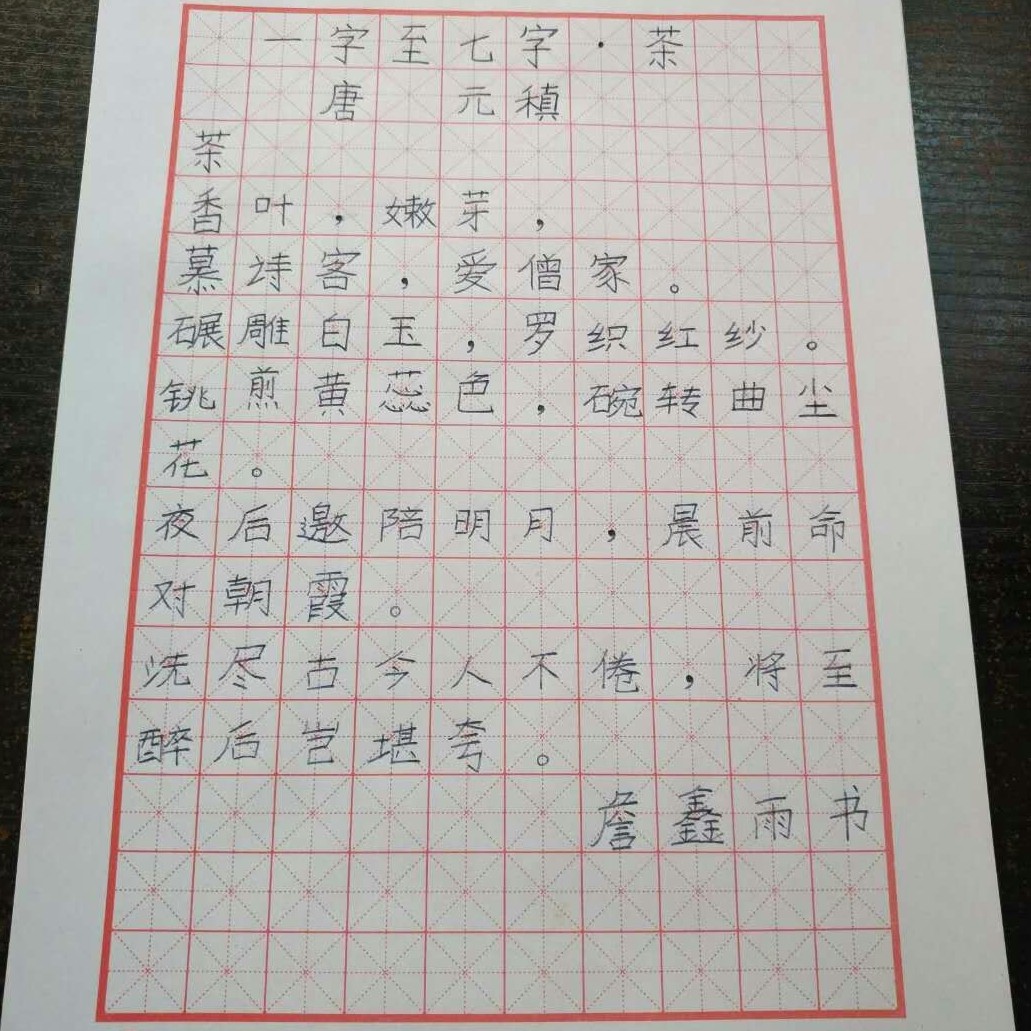 一字至七字·茶
唐 元稹
茶
香叶，嫩芽，
慕诗客，爱僧家。
碾雕白玉，罗织红纱。
铫煎黄蕊色，碗转曲尘
花。
夜后邀陪明月，晨前命
对朝霞。
洗尽古今人不倦，将至
醉后岂堪夸。
詹鑫雨书